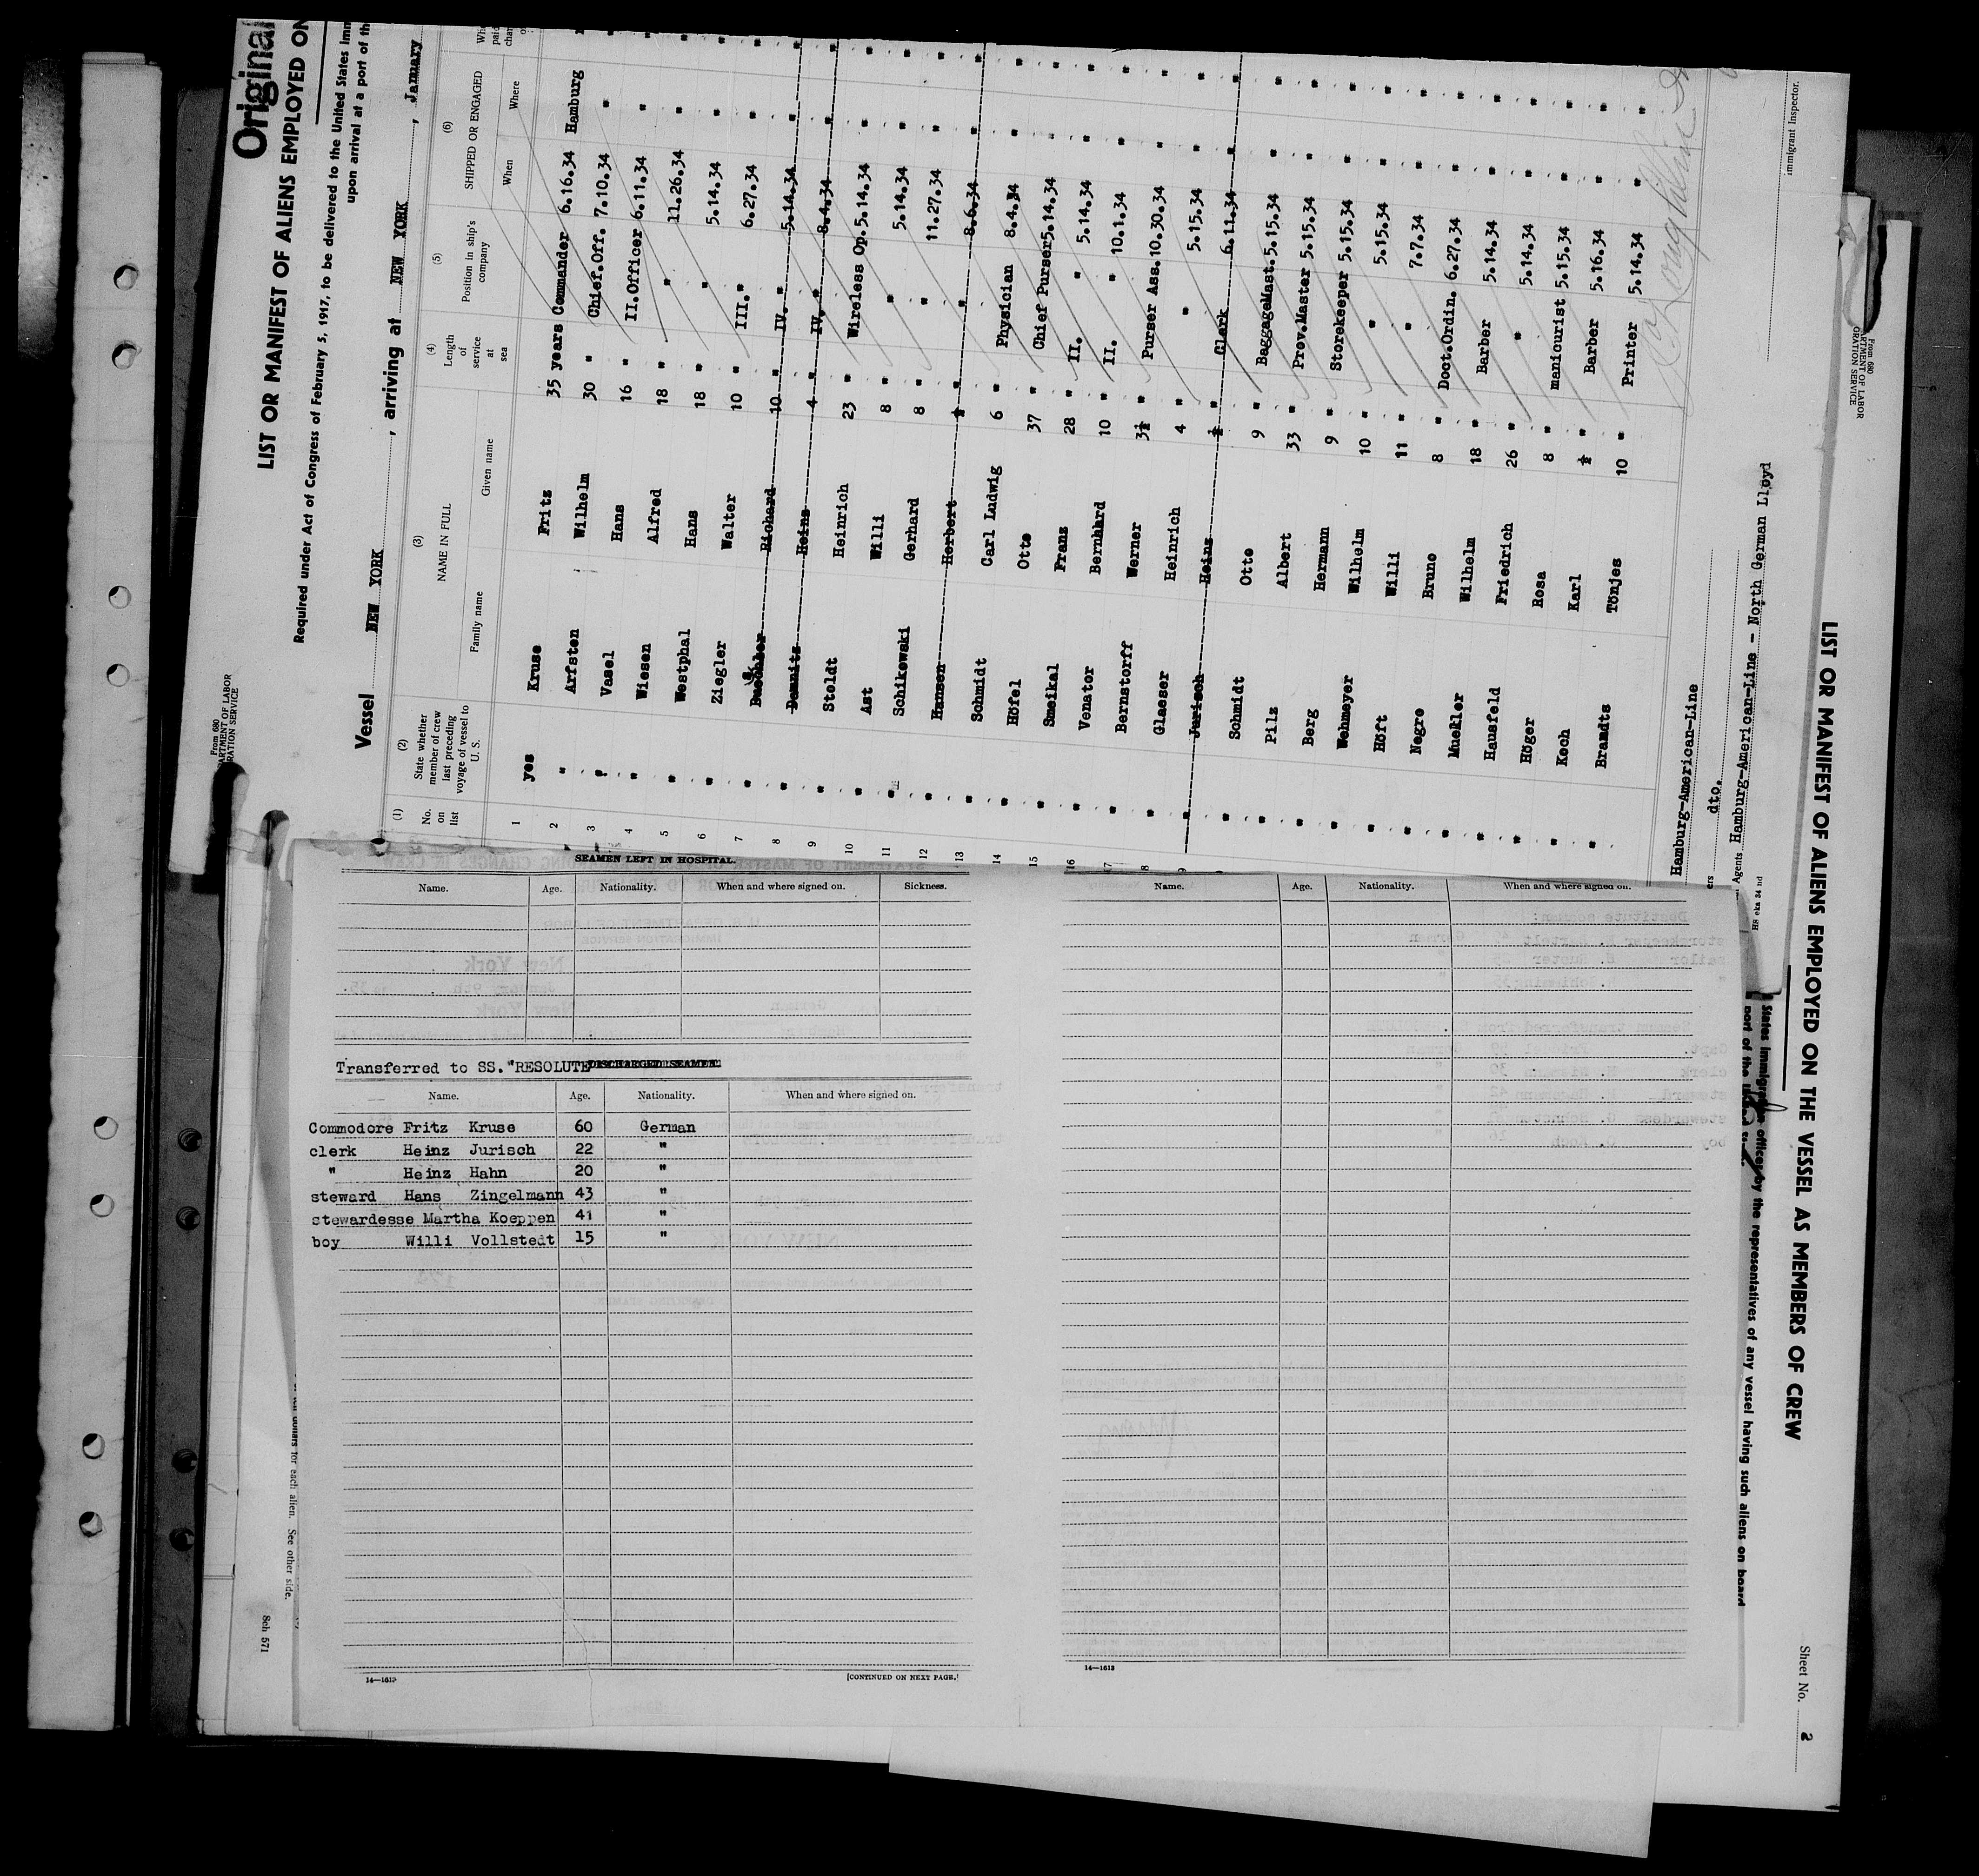 Original
LIST OR MANIFEST OF ALIENS EMPLOYED ON
Required under Act of Congress of February 5, 1917, to be delivered to the United States Imm
upon arrival at a port of th
From 680
ARTMENT OF LABOR
RATION SERVICE
Vessel NEW YORK, arriving at NEW YORK, January
(1) (2) (3) (4) (5) (6)
No. on list
State whether member of crew last preceding voyage of vessel to U. S.
NAME IN FULL
Family name Given name
Length of service at sea
Position in ship's company
SHIPPED OR ENGAGED
When Where
1 yes Kruse Fritz 35 years Commander 6.16.34 Hamburg
2 " Arfsten Wilhelm 30 " Chief.Off. 7.10.34 "
3 " Vasel Hans 16 " II.Officer 6.11.34 "
4 " Wiesen Alfred 18 " " 11.26.34 "
5 " Westphal Hans 18 " " 5.14.34 "
6 " Ziegler Walter 10 " III. " 6.27.34 "
7 " Richard 10 " IV. " 5.14.34 "
8 " Heinz 4 " IV. " 8.4.34 "
9 " Stoldt Heinrich 23 " Wireless Op. 5.14.34 "
10 " Ast Willi 8 " " 5.14.34 "
11 " Schikowski Gerhard 8 " " 11.27.34 "
12 " Hansen Herbert ½ " " 8.6.34 "
13 " Schmidt Carl Ludwig 6 " Physician 8.4.34 "
14 " Höfel Otto 37 " Chief Purser 5.14.34 "
15 " Smeikal Franz 28 " II. " 5.14.34 "
16 " Venator Bernhard 10 " II. " 10.1.34 "
17 " Bernstorff Werner 3½ " Purser Ass. 10.30.34 "
8 " Glaeser Heinrich 4 " " 5.15.34 "
9 " Jurisch Heinz ½ " Clerk 6.11.34 "
" Schmidt Otto 9 " BaggageMast. 5.15.34 "
" Pilz Albert 33 " Prov.Master 5.15.34 "
" Berg Hermann 9 " Storekeeper 5.15.34 "
" Wehmeyer Wilhelm 10 " " 5.15.34 "
" Höft Willi 11 " " 7.7.34 "
" Negro Bruno 8 " Doct.Ordin. 6.27.34 "
" Mueller Wilhelm 18 " Barber 5.14.34 "
" Hausfeld Friedrich 26 " " 5.14.34 "
" Höger Rosa 8 " manicurist 5.15.34 "
" Koch Karl ½ " Barber 5.16.34 "
" Brandts Tönjes 10 " Printer 5.14.34 "
Hamburg-American-Line
ers dto.
Agents Hamburg-American-Line - North German Lloyd
HS eka 34 nd
Immigrant Inspector.
SEAMEN LEFT IN HOSPITAL.
Name. Age. Nationality. When and where signed on. Sickness.
Transferred to SS. "RESOLUTE DISCHARGED SEAMEN.
Name. Age. Nationality. When and where signed on.
Commodore Fritz Kruse 60 German
clerk Heinz Jurisch 22 "
" Heinz Hahn 20 "
steward Hans Zingelmann 43 "
stewardesse Martha Koeppen 41 "
boy Willi Vollstedt 15 "
14—1613
[CONTINUED ON NEXT PAGE.]
Name. Age. Nationality. When and where signed on.
14—1613
dollars for each alien. See other side.
Sch 571
From 680
PARTMENT OF LABOR
GRATION SERVICE
LIST OR MANIFEST OF ALIENS EMPLOYED ON THE VESSEL AS MEMBERS OF CREW
States immigration officer by the representatives of any vessel having such aliens on board
port of the United
Sheet No. 2